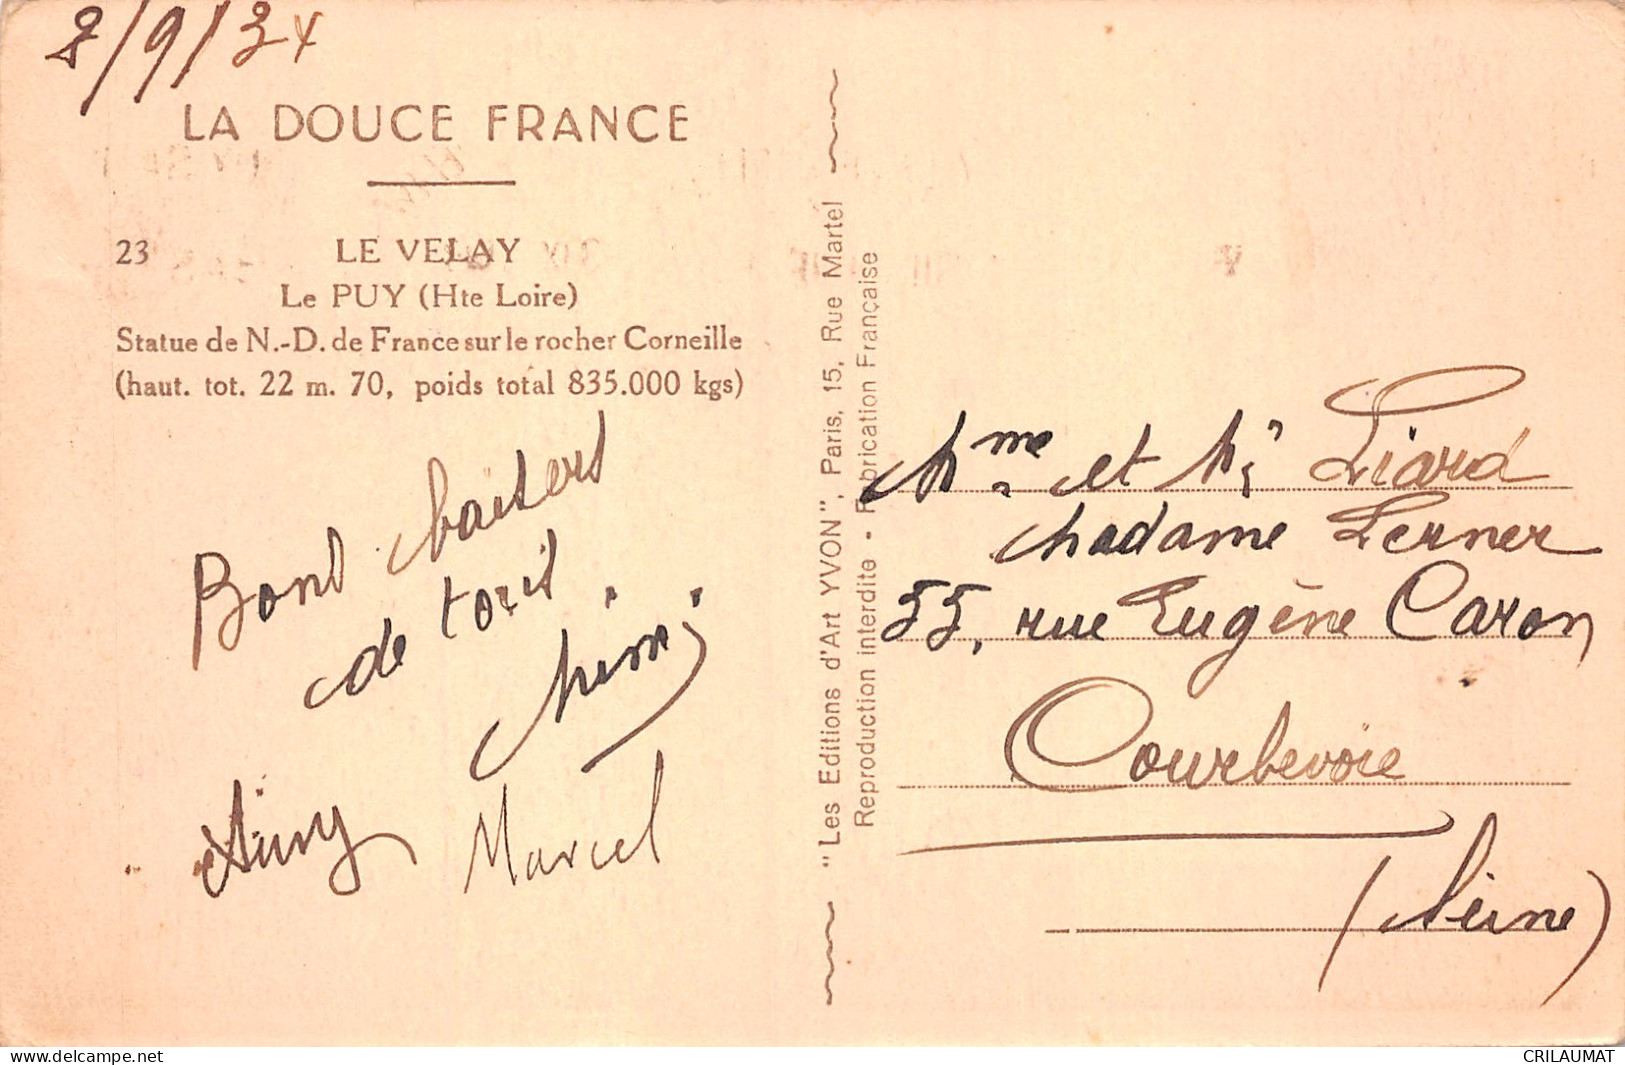 8/9/34
LA DOUCE FRANCE
23 LE VELAY
Le PUY (Hte Loire)
Statue de N.-D. de France sur le rocher Corneille
(haut. tot. 22 m. 70, poids total 835.000 kgs)
Bons baisers
de tous
Mimi
Marcel
"Les Editions d'Art YVON", Paris, 15, Rue Martel
Reproduction interdite - Fabrication Française
Mme et Mr Liard
Madame Lerner
55, rue Eugène Caron
Courbevoie
(Seine)
delcampe.net
CRILAUMAT